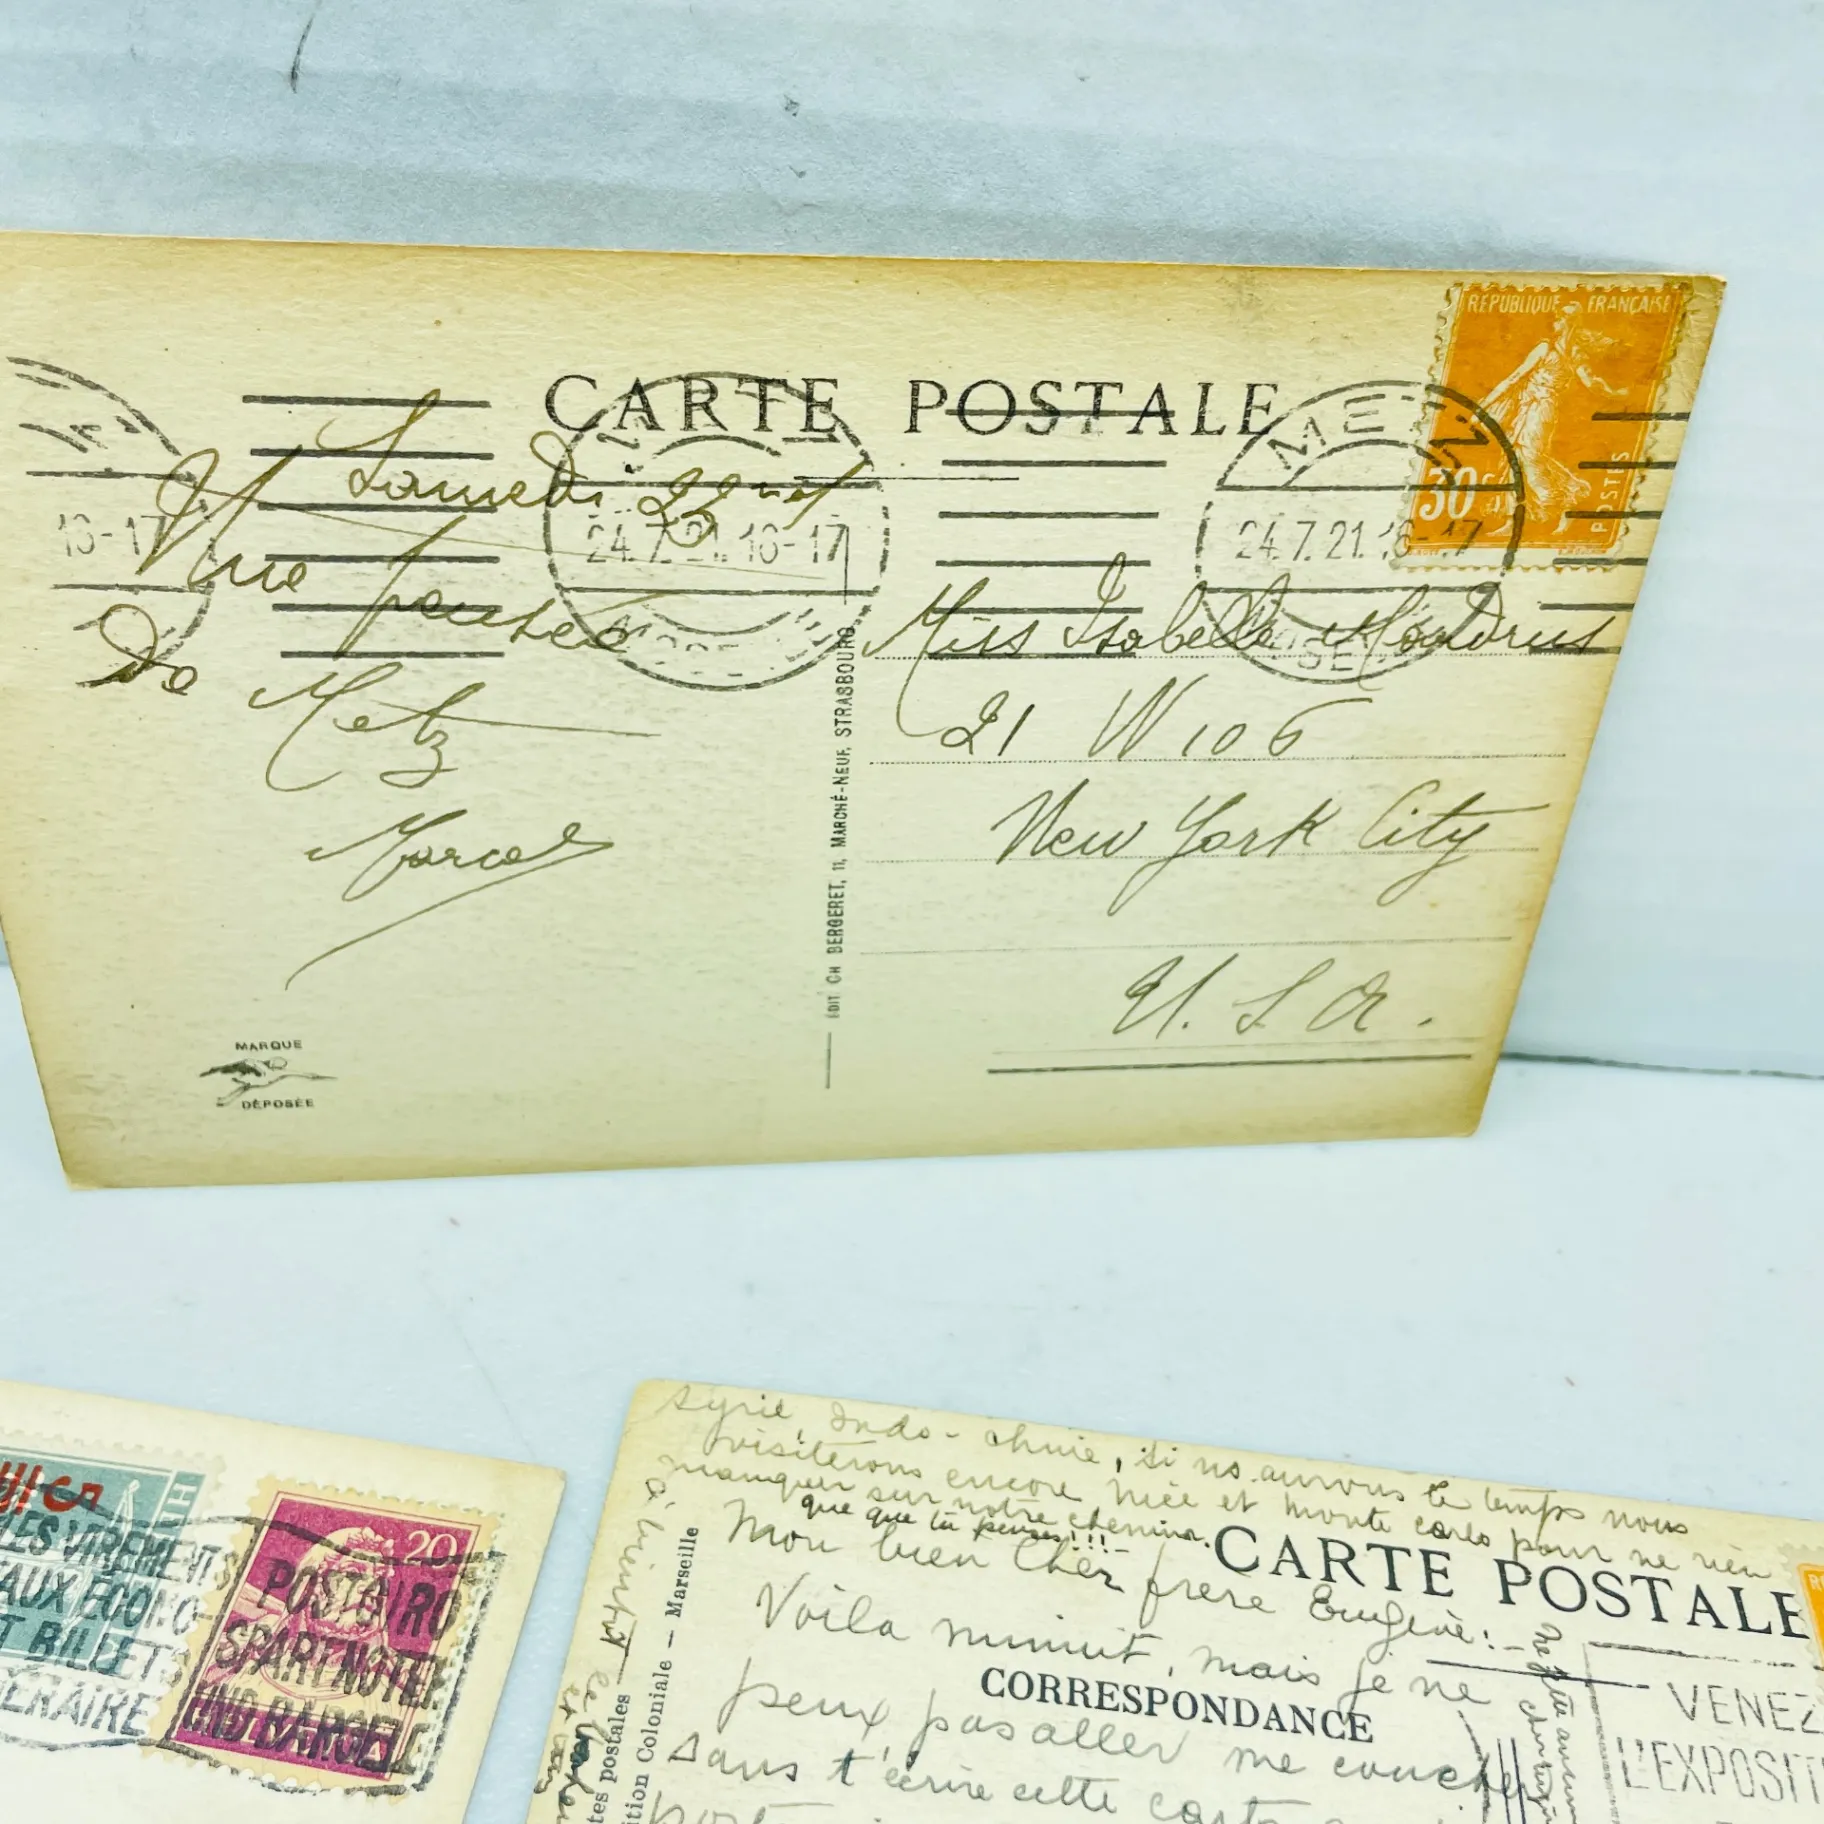 CARTE POSTALE
RÉPUBLIQUE FRANÇAISE
30c
POSTES
METZ
24.7.21. 16-17
24.7.21. 16-17
Samedi 22
Une pensée
de
Metz
Marcel
Miss Isabelle
21 W 106
New York City
U. S. A.
EDIT CH BERGERET, 11, MARCHÉ-NEUF, STRASBOURG
MARQUE
DÉPOSÉE
20
LES VIREMENTS
POSTGIRO
AUX ÉCONO-
T BILLETS
UND
Syrie, Indo-chine, si ns aurons le temps nous
visiterons encore Nice et Monte Carlo pour ne rien
manquer sur notre chemin.
que que tu penses!!!
Mon bien Cher frere Eugène:
CARTE POSTALE
Voila minuit, mais je ne
CORRESPONDANCE
peux pas aller me coucher
sans t'écrire cette carte
tes postales
ition Coloniale — Marseille
VENEZ
L'EXPOSITI